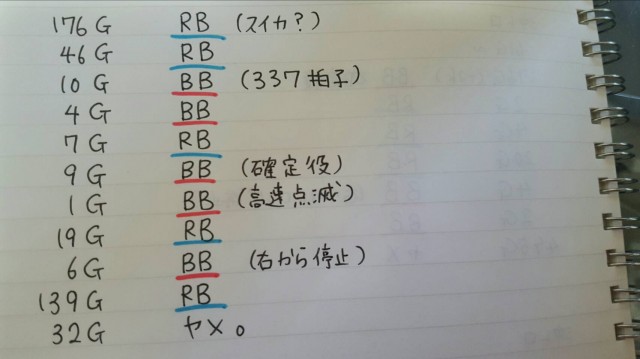 176G RB (スイカ?)
46G RB
10G BB (337拍子)
4G BB
7G RB
9G BB (確定役)
1G BB (高速点滅)
19G RB
6G BB (右から停止)
139G RB
32G ヤメ。